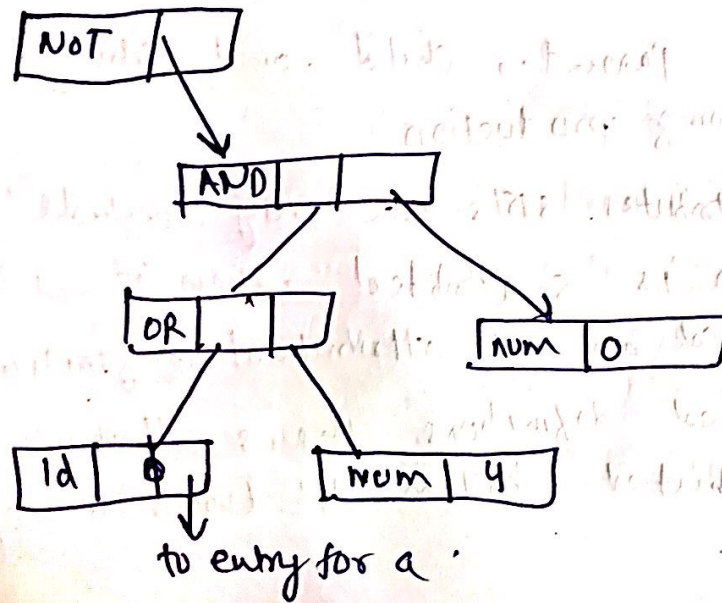 NOT
AND
OR
num 0
Id
num 4
to entry for a.